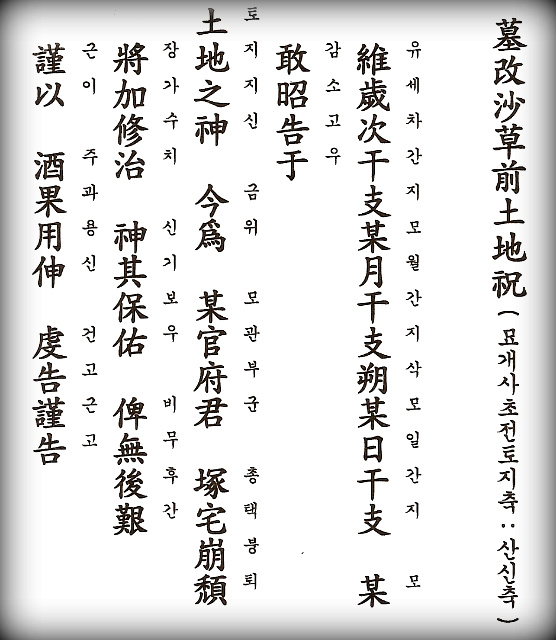 墓改沙草前土地祝(묘개사초전토지축 : 산신축)
유세차간지모월간지삭모일간지 모
維歲次干支某月干支朔某日干支 某
감소고우
敢昭告于
토지지신 금위 모관부군 총택붕퇴
土地之神 今爲 某官府君 塚宅崩頹
장가수치 신기보우 비무후간
將加修治 神其保佑 俾無後艱
근이 주과용신 건고근고
謹以 酒果用伸 虔告謹告